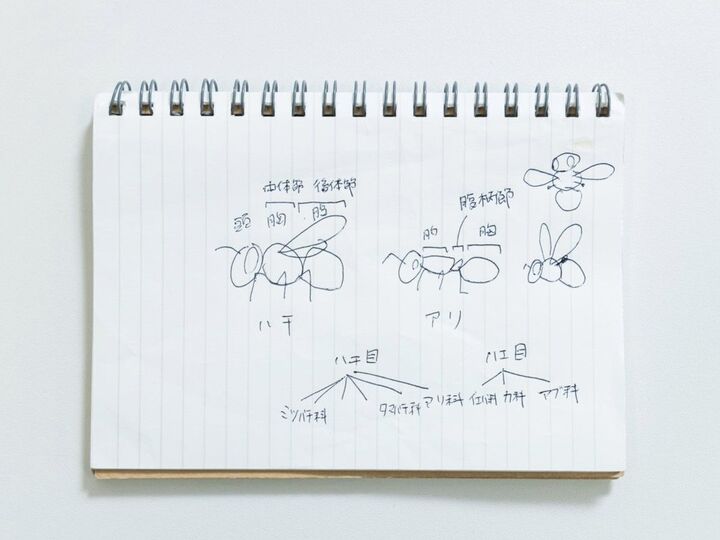 中体節 後体節
頭 胸 胸
腹柄節
胸 胸
ハチ
アリ
ハチ目
ハエ目
ミツバチ科
タマバチ科 アリ科
カ科 アブ科